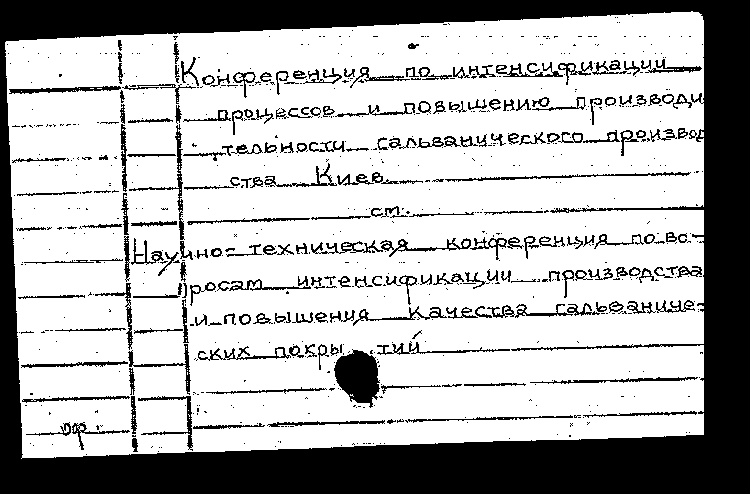 Конференция по интенсификации
процессов и повышению производи
тельности гальванического производ
ства Киев
см.
Научно= техническая конференция по во-
просам интенсификации производства
и повышения качества гальваниче-
ских покры тий